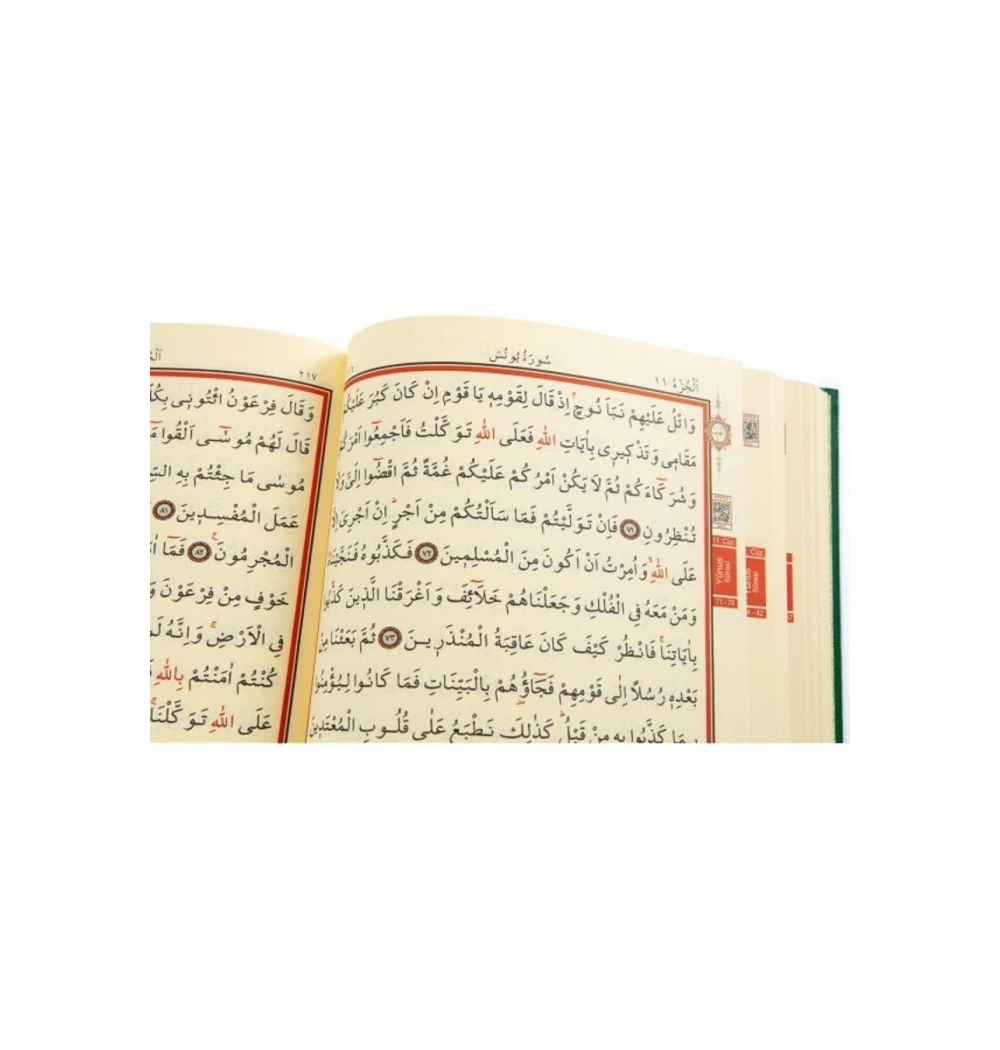 اَلْجُزْءُ ١١
سُورَةُ يُونُسَ
وَاتْلُ عَلَيْهِمْ نَبَاَ نُوحٍۢ اِذْ قَالَ لِقَوْمِه۪ يَا قَوْمِ اِنْ كَانَ كَبُرَ عَلَيْكُمْ
مَقَام۪ي وَتَذْك۪ير۪ي بِاٰيَاتِ اللّٰهِ فَعَلَى اللّٰهِ تَوَكَّلْتُ فَاَجْمِعُٓوا اَمْرَكُمْ
وَشُرَكَٓاءَكُمْ ثُمَّ لَا يَكُنْ اَمْرُكُمْ عَلَيْكُمْ غُمَّةً ثُمَّ اقْضُٓوا اِلَيَّ وَلَا
تُنْظِرُونِ ﴿٧١﴾ فَاِنْ تَوَلَّيْتُمْ فَمَا سَاَلْتُكُمْ مِنْ اَجْرٍۜ اِنْ اَجْرِيَ اِلَّا
عَلَى اللّٰهِۙ وَاُمِرْتُ اَنْ اَكُونَ مِنَ الْمُسْلِم۪ينَ ﴿٧٢﴾ فَكَذَّبُوهُ فَنَجَّيْنَاهُ
وَمَنْ مَعَهُ فِي الْفُلْكِ وَجَعَلْنَاهُمْ خَلَٓائِفَ وَاَغْرَقْنَا الَّذ۪ينَ كَذَّبُوا
بِاٰيَاتِنَاۚ فَانْظُرْ كَيْفَ كَانَ عَاقِبَةُ الْمُنْذَر۪ينَ ﴿٧٣﴾ ثُمَّ بَعَثْنَا مِنْ
بَعْدِه۪ رُسُلًا اِلٰى قَوْمِهِمْ فَجَٓاؤُ۫هُمْ بِالْبَيِّنَاتِ فَمَا كَانُوا لِيُؤْمِنُوا
بِمَا كَذَّبُوا بِه۪ مِنْ قَبْلُۜ كَذٰلِكَ نَطْبَعُ عَلٰى قُلُوبِ الْمُعْتَد۪ينَ
11. Cüz
Yûnus
Sûresi
71 - 78
Cüz
Yûnus
Sûresi
- 42
٢١٧
وَقَالَ فِرْعَوْنُ ائْتُون۪ي بِكُلِّ
قَالَ لَهُمْ مُوسٰٓى اَلْقُوا
مُوسٰى مَا جِئْتُمْ بِهِ
عَمَلَ الْمُفْسِد۪ينَ ﴿٨١﴾
الْمُجْرِمُونَ۟ ﴿٨٢﴾ فَمَٓا
خَوْفٍ مِنْ فِرْعَوْنَ
فِي الْاَرْضِۚ وَاِنَّهُ
كُنْتُمْ اٰمَنْتُمْ بِاللّٰهِ
عَلَى اللّٰهِ تَوَكَّلْنَاۚ